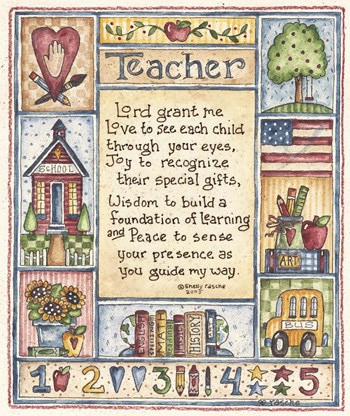 Teacher
Lord grant me
Love to see each child
through your eyes,
Joy to recognize
their special gifts,
Wisdom to build a
foundation of learning
and Peace to sense
your presence as
you guide my way.
©Shelly Rasche
2005
SCHOOL
ART
BUS
ENGLISH
MATH
HISTORY
1 2 3 4 5